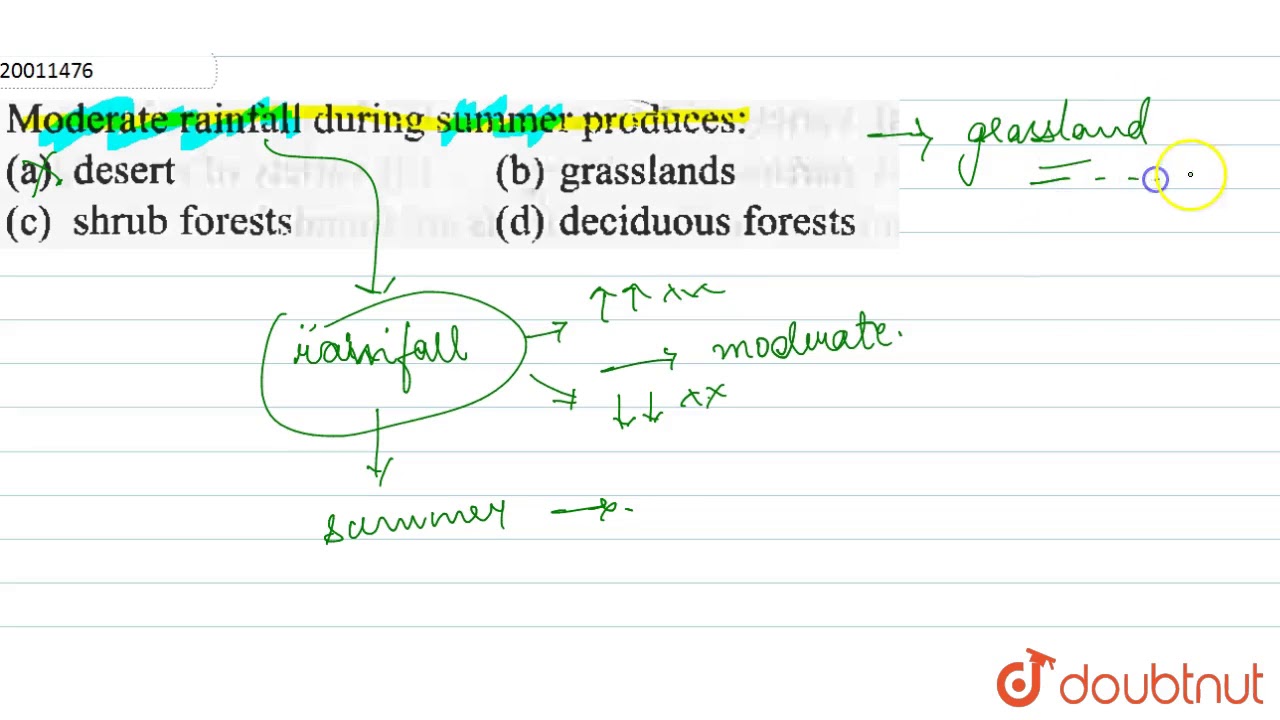 20011476
Moderate rainfall during summer produces:
(a) desert (b) grasslands
(c) shrub forests (d) deciduous forests
→ grassland
rainfall
↑↑ xx
→ moderate.
↓↓ xx
summer →
doubtnut